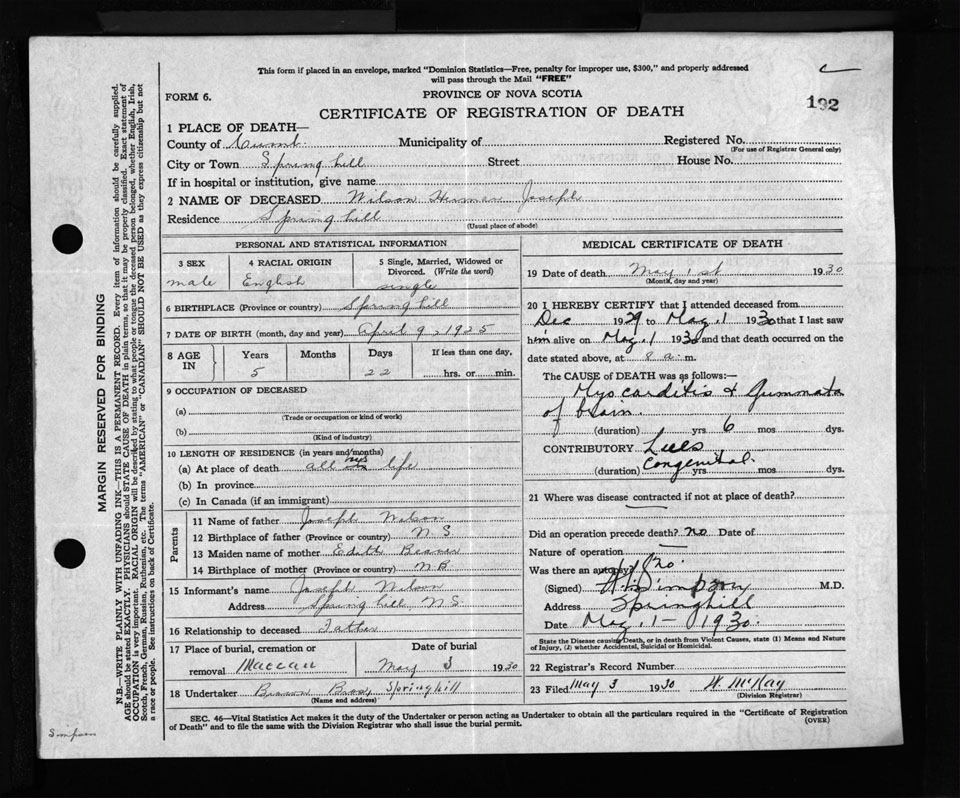 This form if placed in an envelope, marked "Dominion Statistics—Free, penalty for improper use, $300," and properly addressed
will pass through the Mail "FREE"
FORM 6.
PROVINCE OF NOVA SCOTIA
192
CERTIFICATE OF REGISTRATION OF DEATH
1 PLACE OF DEATH—
County of Cumb. Municipality of Registered No.
(For use of Registrar General only)
City or Town Spring hill Street House No.
If in hospital or institution, give name
2 NAME OF DECEASED Wilson Herman Joseph
Residence Spring hill
(Usual place of abode)
PERSONAL AND STATISTICAL INFORMATION
3 SEX 4 RACIAL ORIGIN 5 Single, Married, Widowed or
Divorced. (Write the word)
male English single
6 BIRTHPLACE (Province or country) Spring hill
7 DATE OF BIRTH (month, day and year) April 9, 1925
8 AGE IN Years Months Days If less than one day,
5 22 hrs. or min.
9 OCCUPATION OF DECEASED
(a)
(Trade or occupation or kind of work)
(b)
(Kind of industry)
10 LENGTH OF RESIDENCE (in years and months)
(a) At place of death all his life
(b) In province
(c) In Canada (if an immigrant)
Parents
11 Name of father Joseph Wilson
12 Birthplace of father (Province or country) N S
13 Maiden name of mother Edith
14 Birthplace of mother (Province or country) N B
15 Informant's name Joseph Wilson
Address Spring hill, N S
16 Relationship to deceased Father
17 Place of burial, cremation or Date of burial
removal Maccan May 3 1930
18 Undertaker Brown Bros, Springhill
(Name and address)
MEDICAL CERTIFICATE OF DEATH
19 Date of death May 1st 1930
(Month, day and year)
20 I HEREBY CERTIFY that I attended deceased from
Dec 1929 to May. 1 1930 that I last saw
him alive on May. 1 1930 and that death occurred on the
date stated above, at 8 a. m.
The CAUSE of DEATH was as follows:—
Myocarditis & Gummata
of brain.
(duration) yrs 6 mos dys.
CONTRIBUTORY Lues
Congenital.
(duration) yrs mos dys.
21 Where was disease contracted if not at place of death?
Did an operation precede death? no Date of
Nature of operation —
Was there an autopsy? no.
(Signed) Simpson M.D.
Address Springhill
Date May. 1 - 1930.
State the Disease causing Death, or in death from Violent Causes, state (1) Means and Nature
of Injury, (2) whether Accidental, Suicidal or Homicidal.
22 Registrar's Record Number
23 Filed May 3 1930 W. McKay
(Division Registrar)
SEC. 46—Vital Statistics Act makes it the duty of the Undertaker or person acting as Undertaker to obtain all the particulars required in the "Certificate of Registration
of Death" and to file the same with the Division Registrar who shall issue the burial permit.
(OVER)
MARGIN RESERVED FOR BINDING
N.B.—WRITE PLAINLY WITH UNFADING INK—THIS IS A PERMANENT RECORD. Every item of information should be carefully supplied.
AGE should be stated EXACTLY. PHYSICIANS should STATE CAUSE OF DEATH in plain terms, so that it may be properly classified. Exact statement of
OCCUPATION is very important. RACIAL ORIGIN will be described by stating to what people or tongue the deceased person belonged, whether English, Irish,
Scotch, French, German, Russian, Ruthenian, etc. The terms "AMERICAN" or "CANADIAN" SHOULD NOT BE USED as they express citizenship but not
a race or people. See instructions on back of Certificate.
Simpson